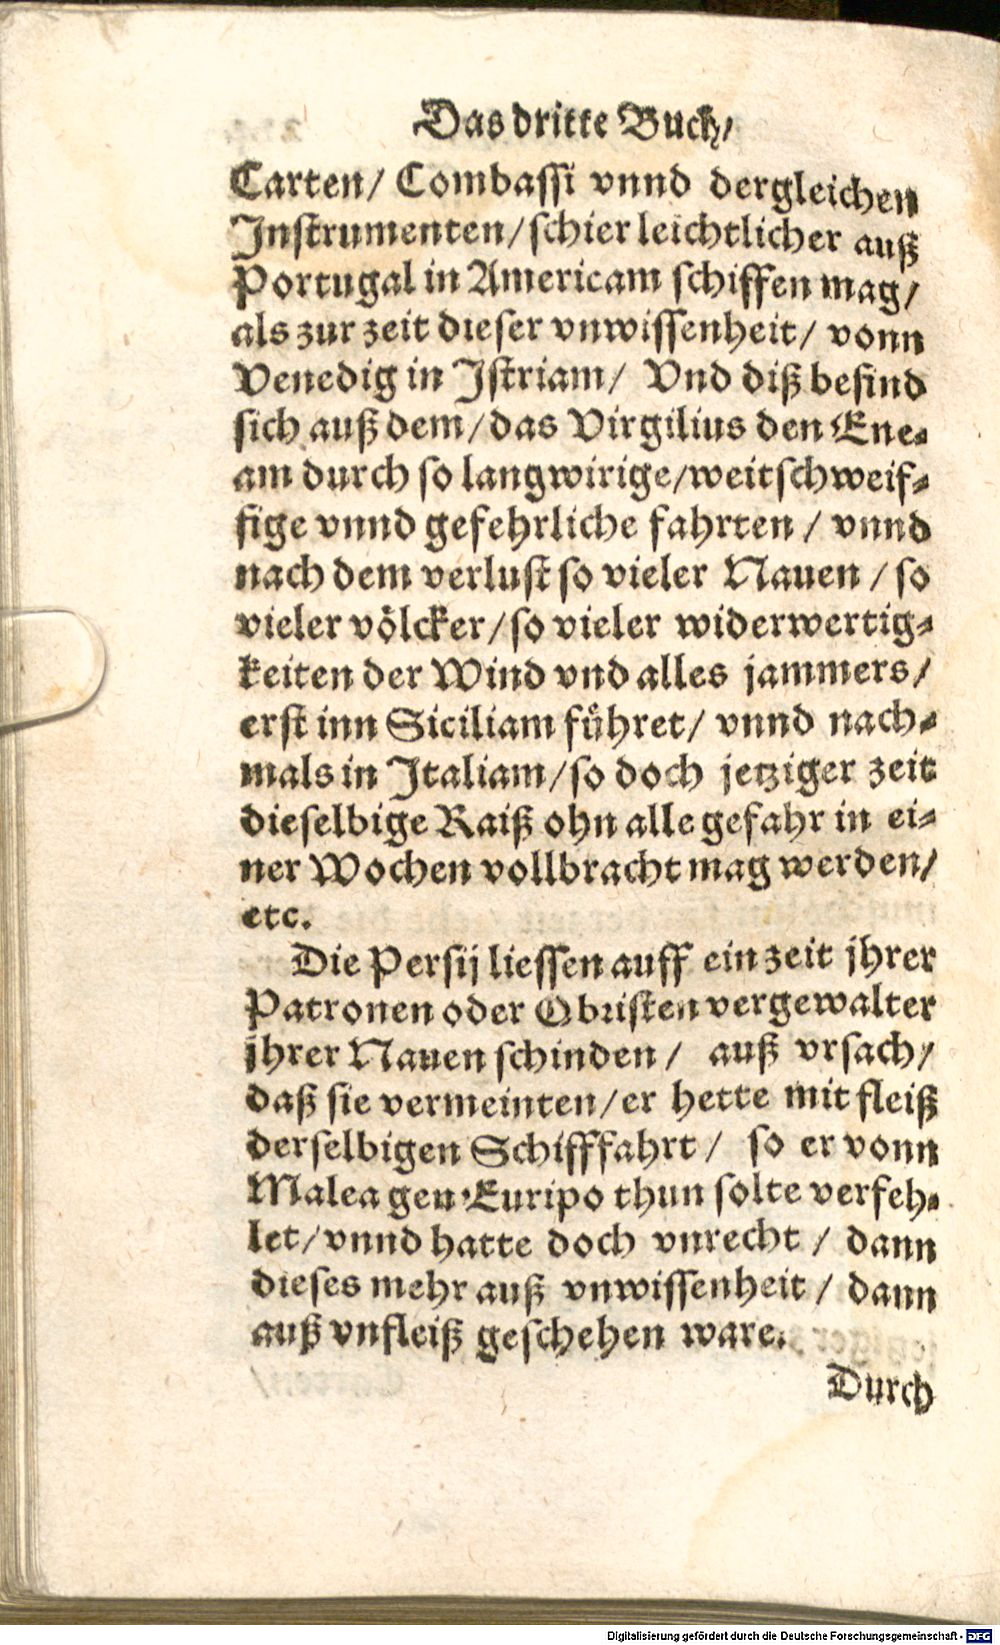 Das dritte Buch/
Carten/ Combassi vnnd dergleichen
Instrumenten/schier leichtlicher auß
Portugal in Americam schiffen mag/
als zur zeit dieser vnwissenheit/ vonn
Venedig in Istriam/ Vnd diß befind
sich auß dem/das Virgilius den Ene-
am durch so langwirige/weitschweif-
fige vnnd gefehrliche fahrten / vnnd
nach dem verlust so vieler Nauen / so
vieler völcker/so vieler widerwertig-
keiten der Wind vnd alles jammers/
erst inn Siciliam führet/ vnnd nach-
mals in Italiam/so doch jetziger zeit
dieselbige Raiß ohn alle gefahr in ei-
ner Wochen vollbracht mag werden/
etc.
Die Persij liessen auff ein zeit jhrer
Patronen oder Obristen vergewalter
jhrer Nauen schinden/ auß vrsach/
daß sie vermeinten/er hette mit fleiß
derselbigen Schifffahrt/ so er vonn
Malea gen Euripo thun solte verfeh-
let/vnnd hatte doch vnrecht / dann
dieses mehr auß vnwissenheit/ dann
auß vnfleiß geschehen ware.
Durch
Digitalisierung gefördert durch die Deutsche Forschungsgemeinschaft - DFG